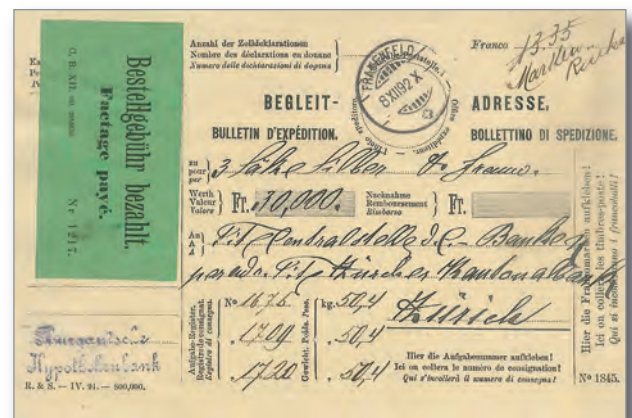 Anzahl der Zolldeklarationen
Nombre des déclarations en douane
Numero delle dichiarazioni di dogana
Franco 13.35
Marken Rücks.
FRAUENFELD
8 XII 92 X
BEGLEIT- ADRESSE.
BULLETIN D'EXPÉDITION. BOLLETTINO DI SPEDIZIONE.
Bestellgebühr bezahlt.
Factage payé.
Nr 1217.
zu
pour
per
3 Säke Silber
Werth
Valeur
Valore
Fr. 30,000.
Nachnahme
Remboursement
Rimborso
Fr.
An
A
A
Tit. Centralstelle d. C. - Banken
per ads. Tit. Zürcher Kantonalbank
Zürich
Aufgabe-Register.
Registre de consignat.
Registro di consegna.
No 1676
1709
1720
Gewicht. Poids. Peso.
kg. 50,4
50,4
50,4
Hier die Aufgabenummer aufkleben!
Ici on collera le numéro de consignation!
Qui s'incollerà il numero di consegna!
Hier die Frankomarken aufkleben!
Ici on collera les timbres-poste!
Qui si incollano i francobolli!
No 1845.
Thurgauische
Hypothekenbank
R. & S. — IV. 91. — 800,000.